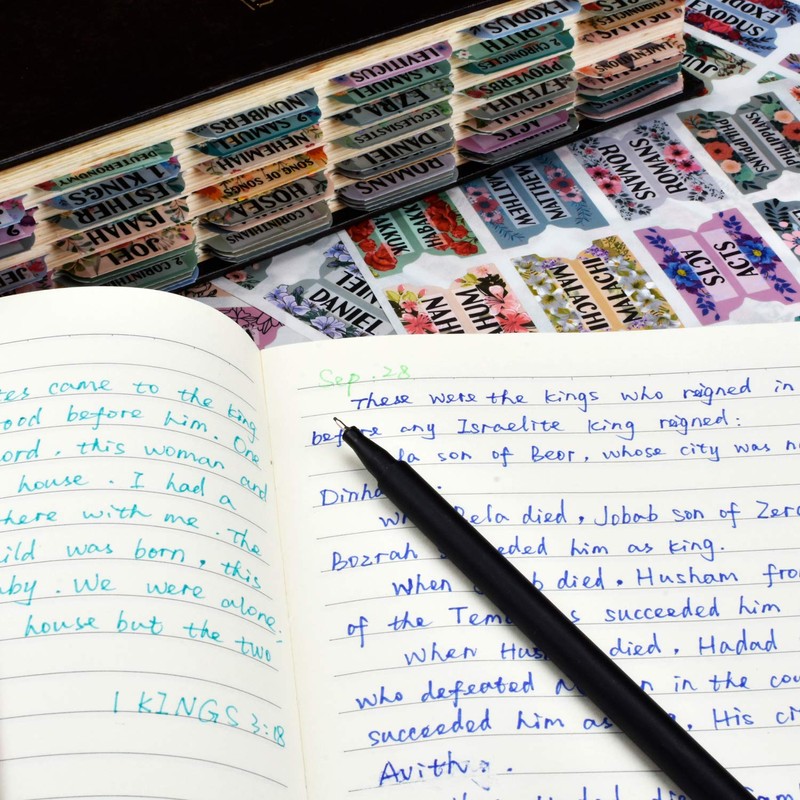 DEUTERONOMY
1 KINGS
ESTHER
ISAIAH
JOEL
2 CORINTHI
NUMBERS
2 SAMUEL
NEHEMIAH
SONG OF SONGS
HOSEA
1 CORINTHIANS
LEVITICUS
1 SAMUEL
EZRA
ECCLESIASTES
DANIEL
ROMANS
EXODUS
RUTH
2 CHRONICLES
PROVERBS
EZEKIEL
ACTS
CHRONICLES
LAMENTATIONS
EXODUS
EXODUS
MATTHEW
MATTHEW
ROMANS
ROMANS
PHILIPPIANS
PHILIPPIANS
HABAKK
DANIEL
NAH
MALACHI
MALACHI
ACTS
ACTS
tes came to the king
ood before him. One
ord, this woman and
house. I had a
here with me. The
ild was born, this
aby. We were alone;
house but the two
1 KINGS 3:18
Sep. 28
These were the kings who reigned in
before any Israelite king reigned:
la son of Beor, whose city was n
Dinha
Bela died, Jobab son of Zer
Bozrah eded him as king.
When b died, Husham fro
of the Tem s succeeded him
When Hus died, Hadad
who defeated in the cou
succeeded him as , His ci
Avith.